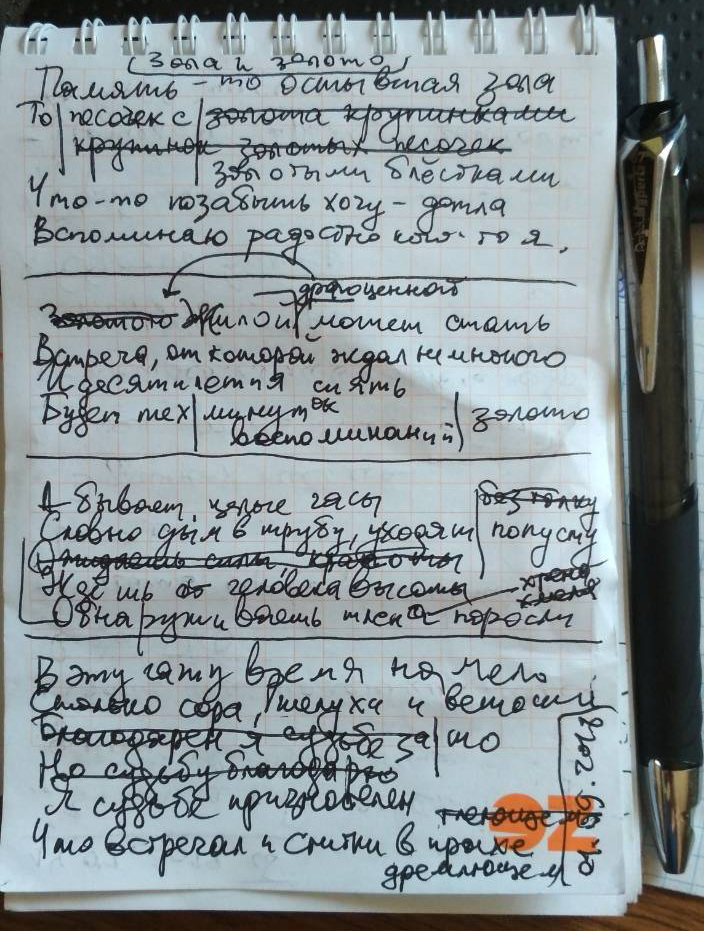 (Зола и золото)
Память – то остывшая зола
То песочек с золота крупинками
крупинок золотых песочек
золотыми блёстками
Что-то позабыть хочу – дотла
Вспоминаю радостно кого-то я.
драгоценной
Золотою Жилой может стать
Встреча, от которой ждал немного
И десятилетия сиять
Будет тех минуток золото
воспоминаний
А бывает, целые часы без толку
Словно дым в трубу, уходят попусту
Ждёшь от человека высоты хрена
Обнаруживаешь тлена поросли
В эту чашу время намело
Столько сора, шелухи и ветоши
Благодарен я судьбе за то
Но судьбу благодарю
Я судьбе признателен
Что встречал и слитки в прахе
дремлющем
92